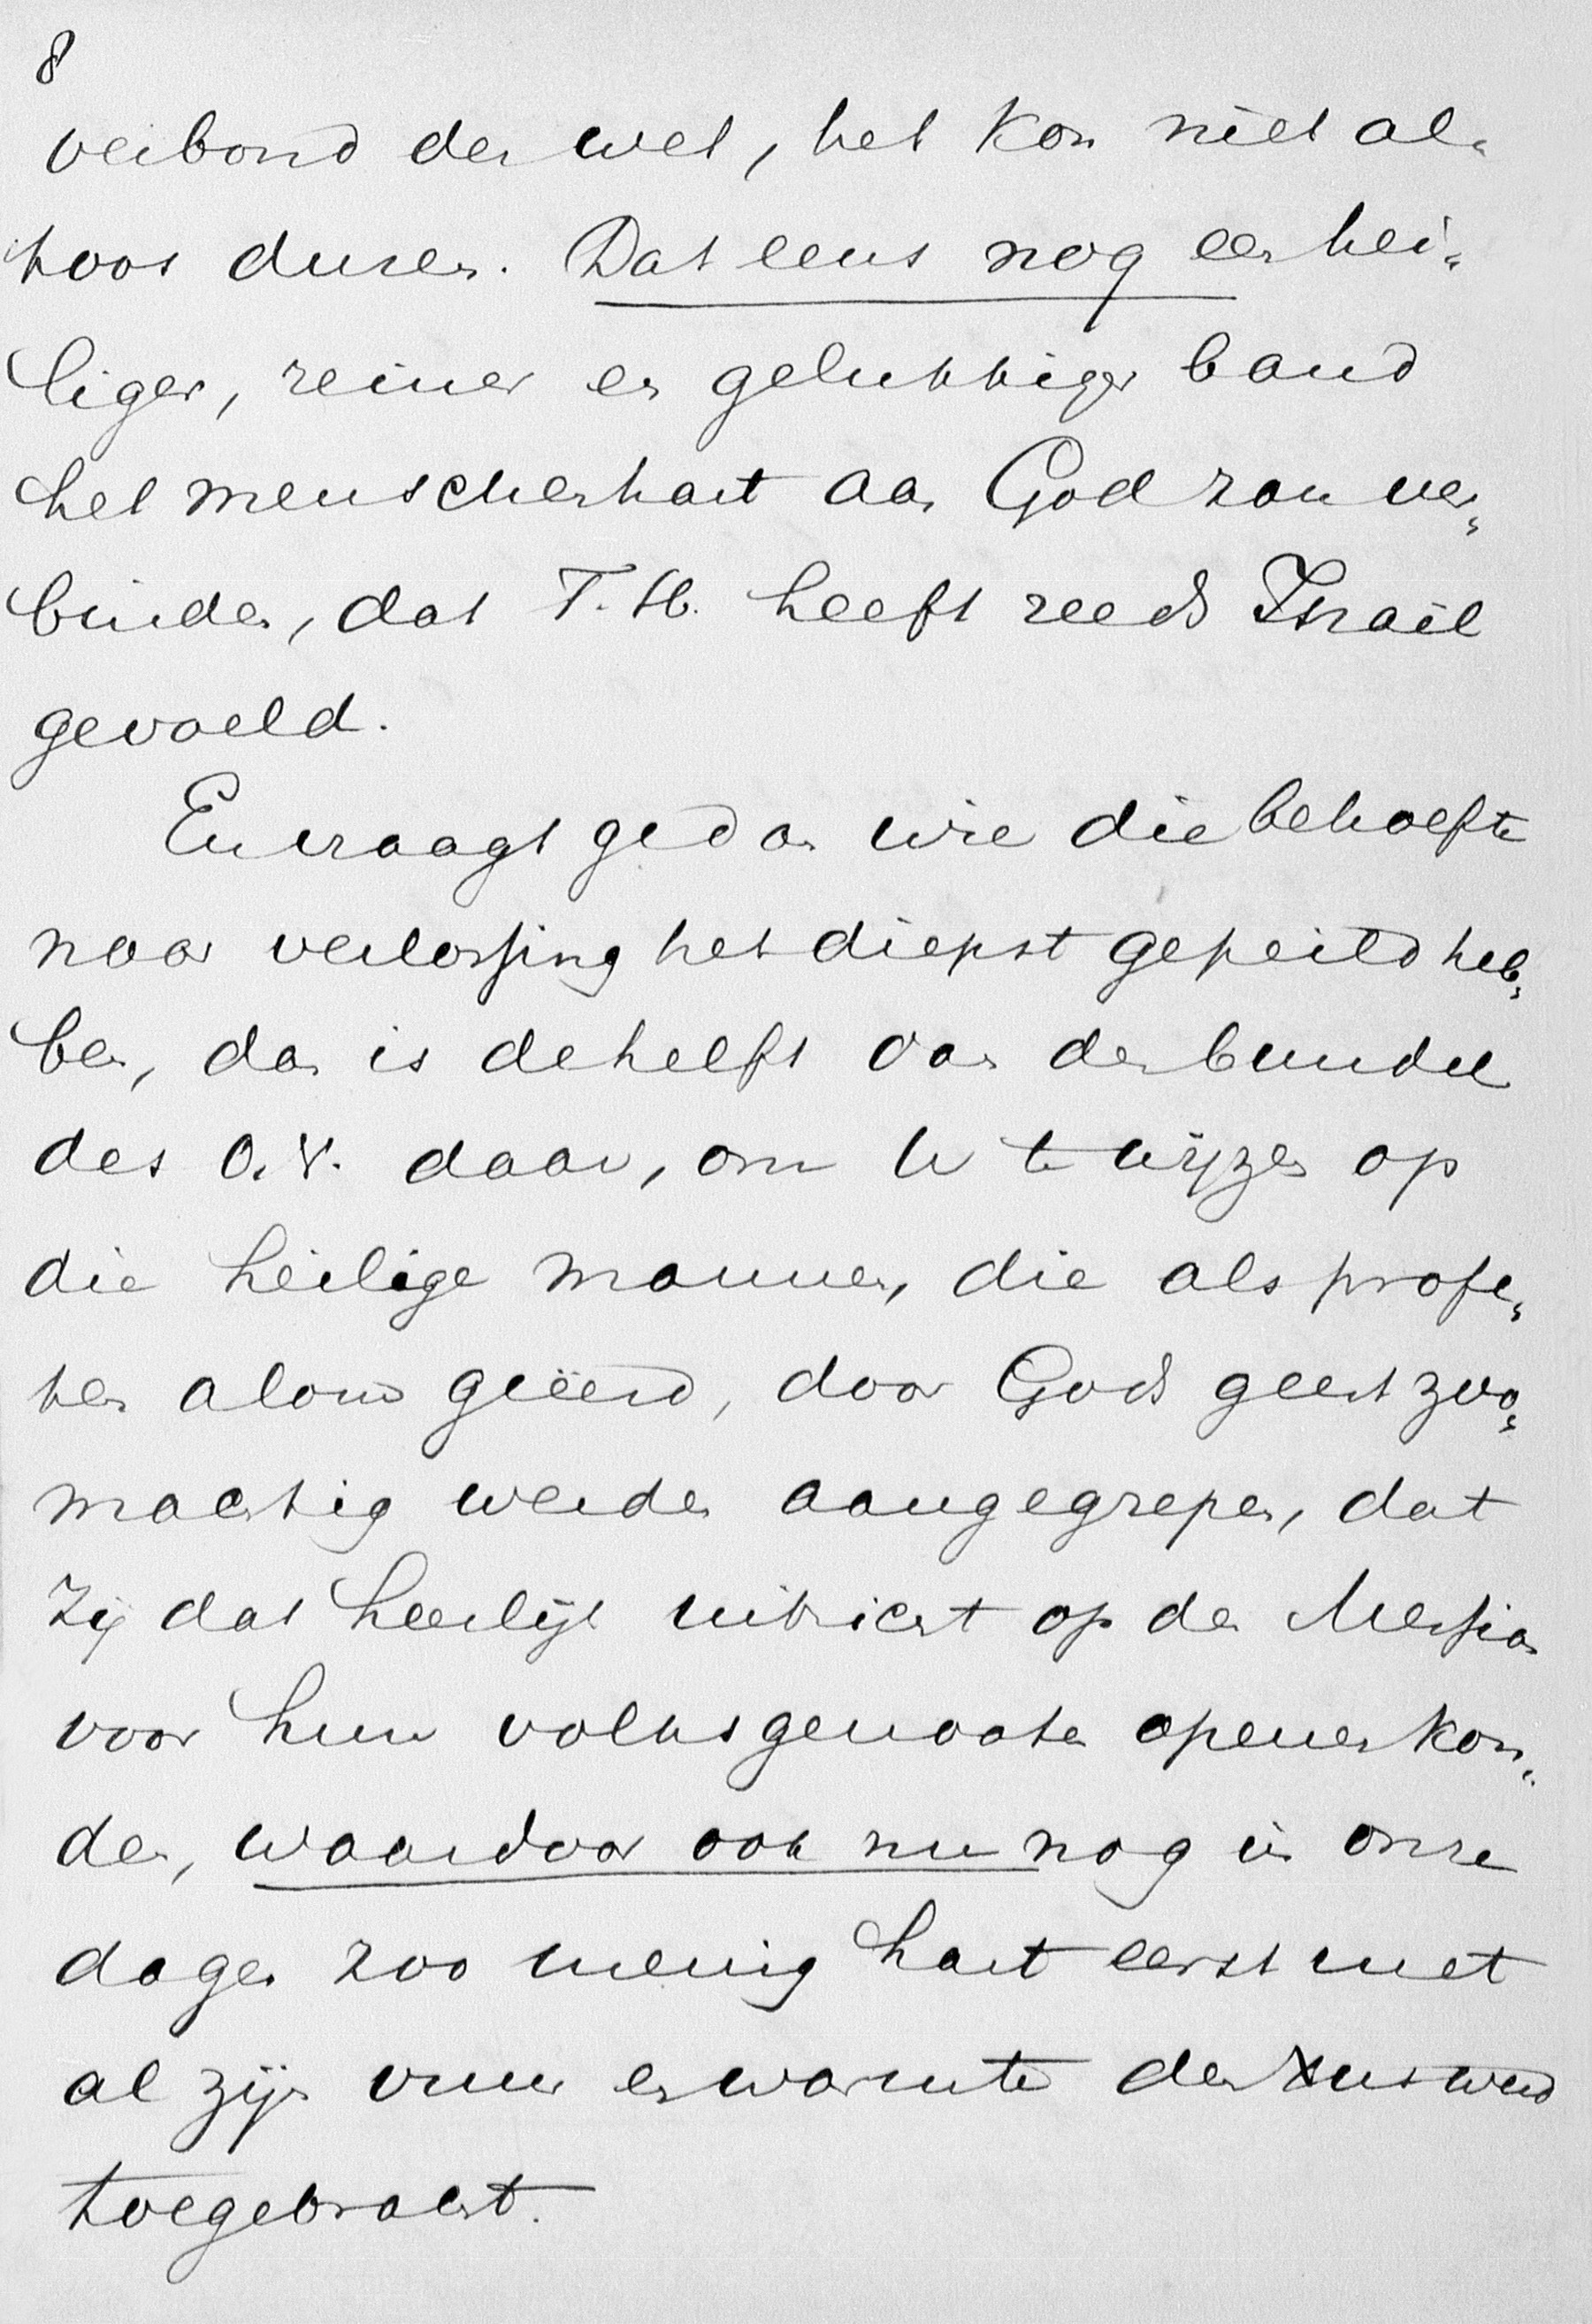 8
verbond der wet, het kon niet al-
toos duren. Dat eens nog een hei-
liger, reiner en gelukkiger band
het menschenhart aan God zou ver-
binden, dat T. H. heeft reeds Israël
gevoeld.
En vraagt ge dan wie die behoefte
naar verlossing het diepst gepeild heb-
ben, dan is de helft van den bundel
des O.V. daar, om U te wijzen op
die heilige mannen, die als profe-
ten alom geëerd, door Gods geest zoo-
machtig werden aangegrepen, dat
zij dat heerlijk uitzicht op den Messias
voor hun volksgenooten openen kon-
den, waardoor ook nu nog in onze
dagen zoo menig hart eerst met
al zijn vuur en warmte den Xus werd
toegebracht.